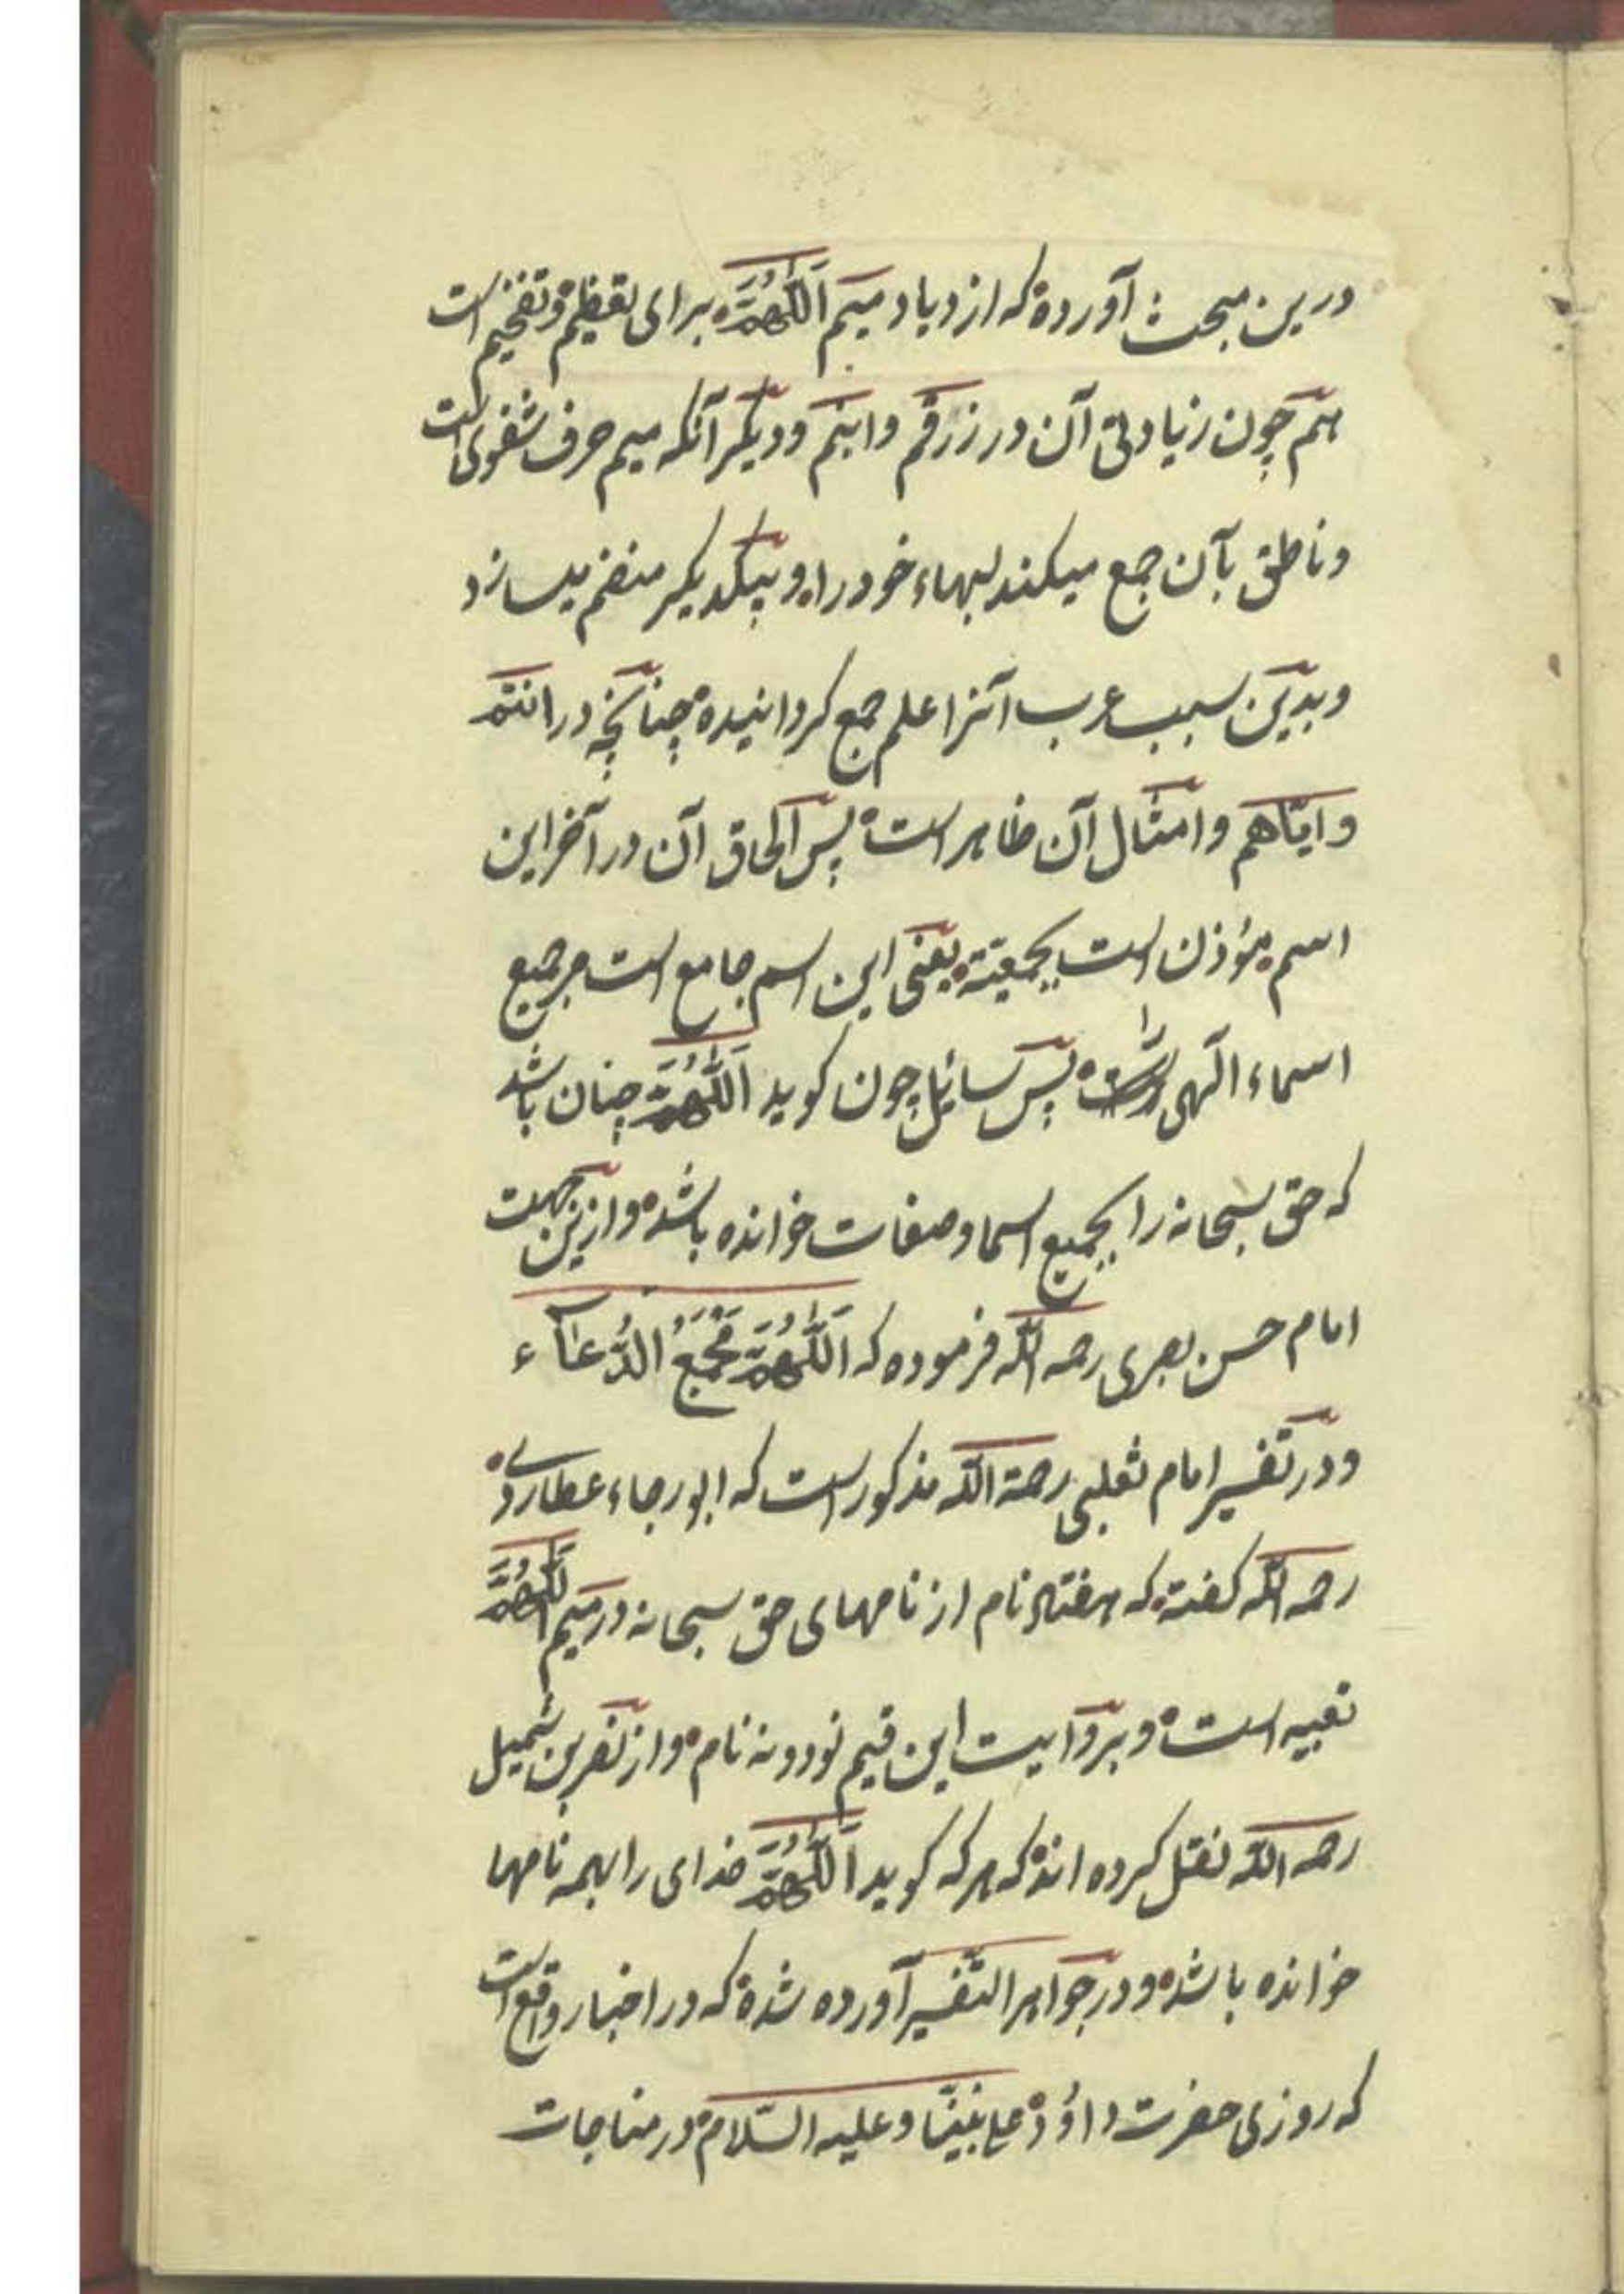 درین مبحث آورده که ازدیاد میم اَللّٰهُمَّ برای تعظیم و تفخیم است
هم چون زیادتی آن در زرقم وابنم ودیکر آنکه میم حرف شفوی است
وناطق بآن جمع میکند لبهاء خود را و بیکدیکر منضم میسازد
وبدین سبب عرب آنرا علم جمع کردانیده چنانچه در انتم
وایّاهم وامثال آن ظاهر است پس الحاق آن در آخر این
اسم مؤذن است بجمعیته یعنی این اسم جامع است مر جمیع
اسماء الٓهی راست پس سائل چون کوید اَللّٰهُمَّ چنان باشد
که حق سبحانه را بجمیع اسما وصفات خوانده باشد وازین جهت
امام حسن بصری رحمه اللّٰه فرموده که اَللّٰهُمَّ مَجْمَعُ الدُّعَآء
ودر تفسیر امام ثعلبی رحمة اللّٰه مذکور است که ابو رجاء عطاردی
رحمه اللّٰه کفته که هفتاد نام از نامهای حق سبحانه در میم اَللّٰهُمَّ
تعبیه است وبروایت این قیم نودونه نام واز نضر بن شمیل
رحمه اللّٰه نقل کرده اند که هر که کوید اَللّٰهُمَّ خدای را بهمه نامها
خوانده باشد ودر جواهر التّفسیر آورده شده که در اخبار واقع است
که روزی حضرت داؤد علی نبیّنا وعلیه السّلام در مناجات